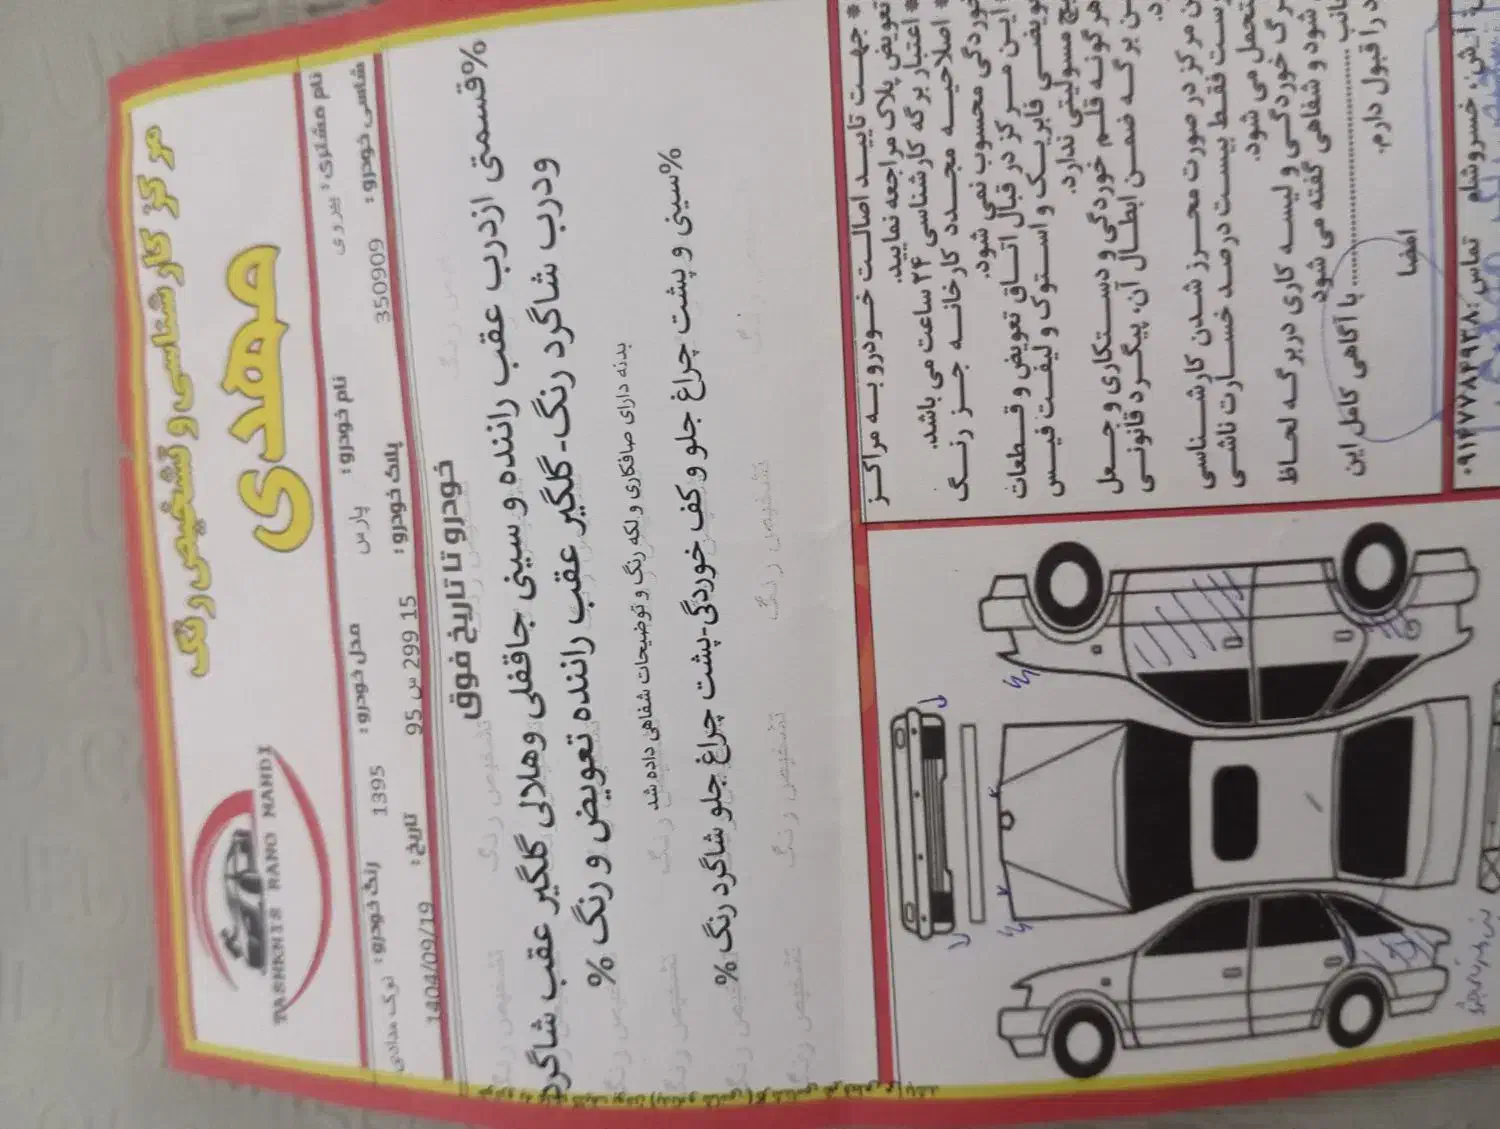 مرکز کارشناسی و تشخیص رنگ
مهدی
TASHKHIS RANG MAHDI
نام مشتری: پیروزی نام خودرو: پارس مدل خودرو: 1395 رنگ خودرو: نوک مدادی
شاسی خودرو: 350909 پلاک خودرو: 95 س 299 15 تاریخ: 1404/09/19
خودرو تا تاریخ فوق
%قسمتی ازدرب عقب راننده و سینی جاقفلی وهلالی گلگیر عقب شاگرد
ودرب شاگرد رنگ-گلگیر عقب راننده تعویض و رنگ %
بدنه دارای صافکاری و لکه رنگ و توضیحات شفاهی داده شد
%سینی و پشت چراغ جلو و کف خوردگی-پشت چراغ جلو شاگرد رنگ %
* جهت تایید اصالت خودرو به مراکز
تعویض پلاک مراجعه نمایید.
* اعتبار برگه کارشناسی ۲۴ ساعت می باشد.
* اصلاحیه مجدد کارخانه جز رنگ
خوردگی محسوب نمی شود.
* این مرکز در قبال اتاق تعویض و قطعات
تعویضی فابریک و استوک و لیفت فیس
هیچ مسولیتی ندارد.
هرگونه قلم خوردگی و دستکاری و جعل
برگه ضمن ابطال آن، پیگرد قانونی
مرکز در صورت محرز شدن کارشناسی
فقط بیست درصد خسارت ناشی
متحمل می شود.
خوردگی و لیسه کاری در برگه لحاظ
شود و شفاهی گفته می شود
با آگاهی کامل این
را قبول دارم.
امضا
خسروشاه تماس: ۰۹۱۴۷۷۸۴۹۳۸